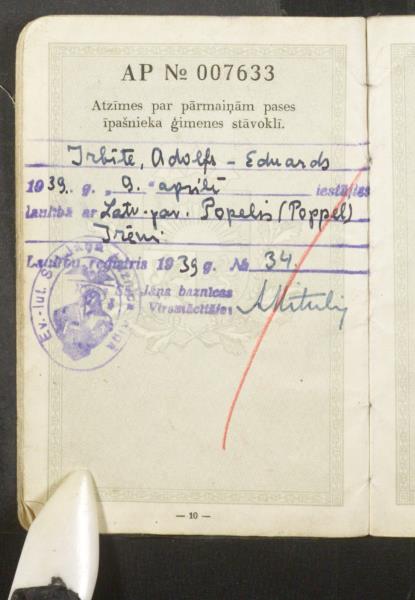 AP № 007633
Atzīmes par pārmaiņām pases
īpašnieka ģimenes stāvoklī.
Irbīte, Ādolfs - Eduards
1939. g. „9. “aprīlī iestājies
laulībā ar Latv. pav. Popelis (Poppel)
Irēni.
Laulību reģistris 1939 g. № 34.
Sv. Jāņa baznīcas
Virsmācītājs:
Ev.-lut. Sv. Jāņa
— 10 —